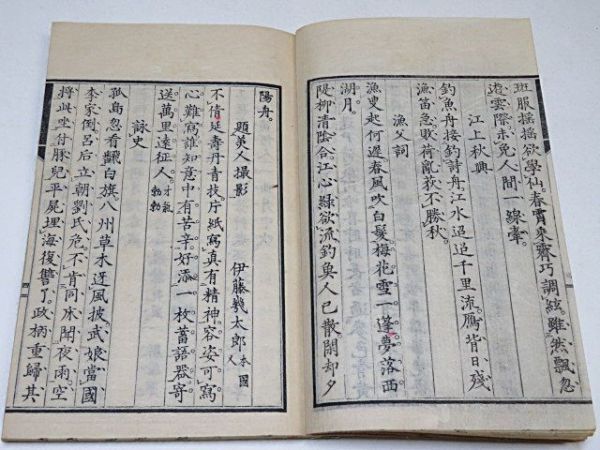 班服搖搖欲學仙。春來齋巧調絃。雖然飄忽
遊雲際。未免人間一線牽。
江上秋興
釣魚舟接釣詩舟。江水迢迢千里流。雁背日殘
漁笛急。敗荷亂荻不勝秋。
漁父詞
漁叟起何遲。春風吹白髮。梅花雪一蓬。夢落西
湖月。
隄柳清陰合。江心綠欲流。釣魚人已散。閒却夕
陽舟。
題美人撮影 伊藤幾太郎 本國人
不倩延壽丹青技。片紙寫真有精神。容姿可寫
心難寫。誰知意中有苦辛。好添一枚蓄語器。寄
送萬里遠征人。才氣勃勃
詠史
孤島忽看飜白旗。八州草木迓風披。武娘當國
李家倒。呂后立朝劉氏危。不肯同牀聞夜雨。空
將坐付豚兒。平屍埋海復讐了。政柄重歸其